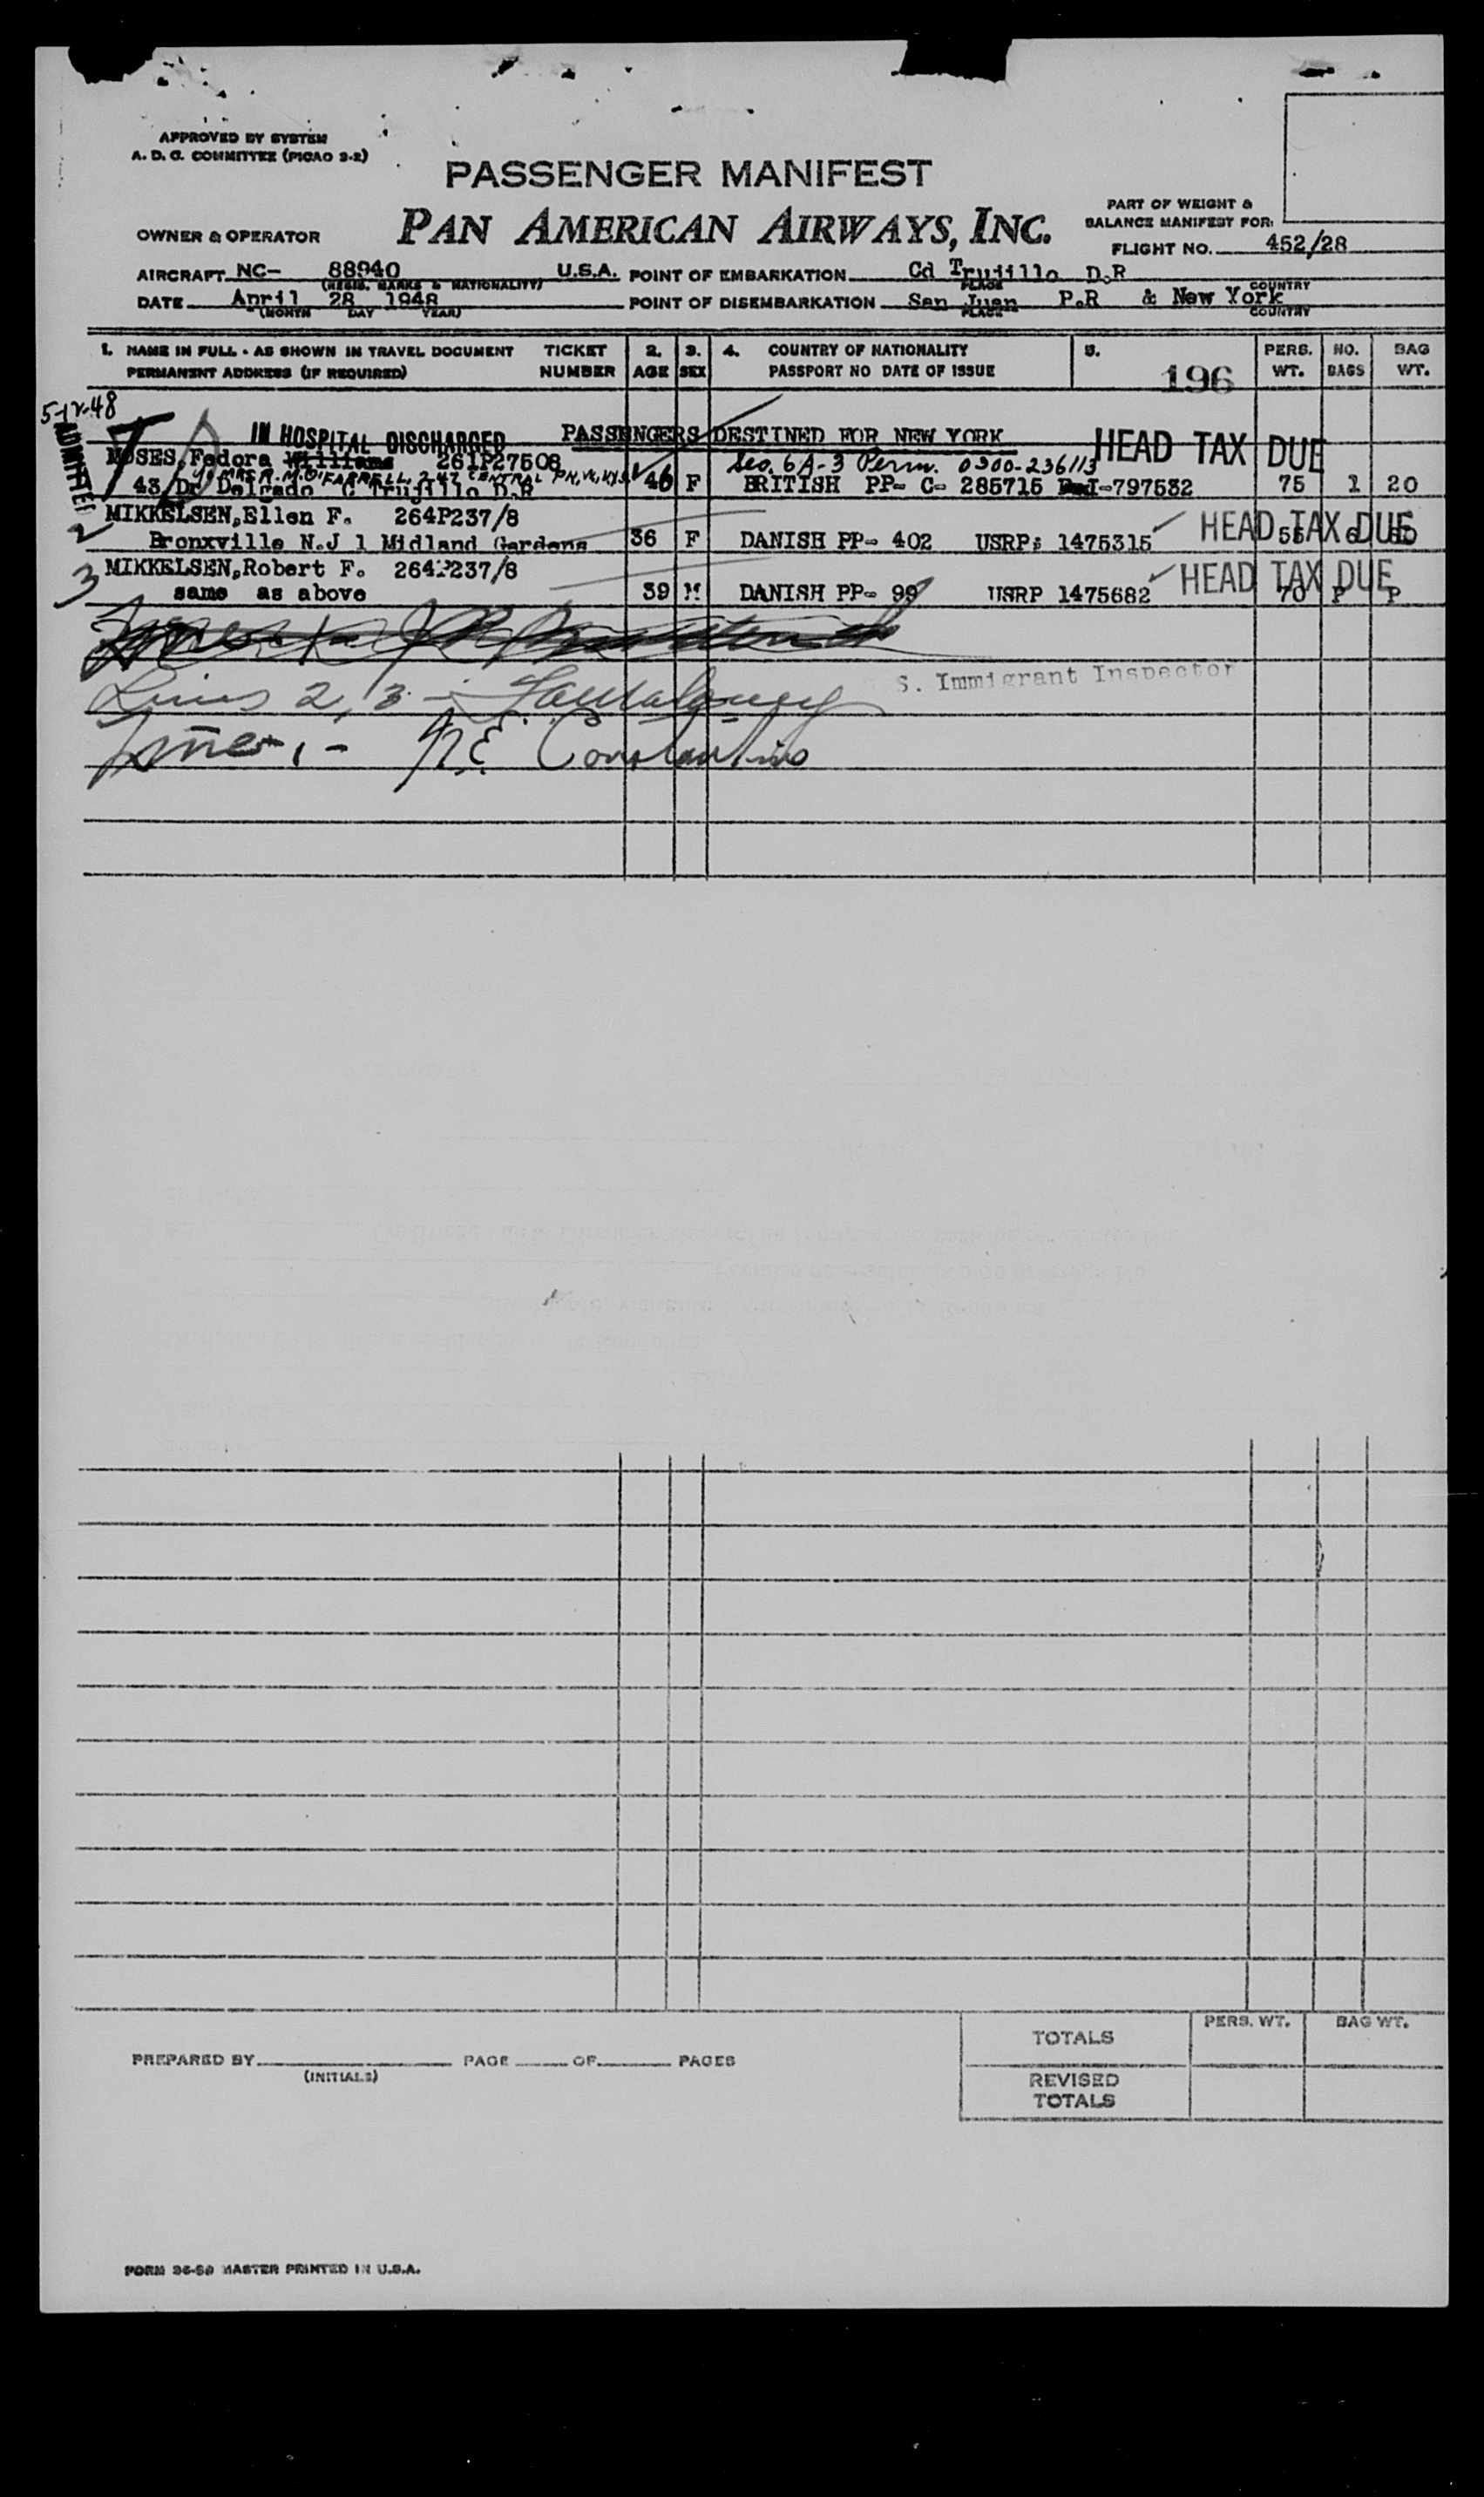 APPROVED BY SYSTEM
A. D. C. COMMITTEE (PICAO 2-2)
PASSENGER MANIFEST
PAN AMERICAN AIRWAYS, INC.
OWNER & OPERATOR
PART OF WEIGHT &
BALANCE MANIFEST FOR:
FLIGHT NO. 452/28
AIRCRAFT NC- 88940 U.S.A. POINT OF EMBARKATION Cd Trujillo D.R
(REGIS. MARKS & NATIONALITY) PLACE COUNTRY
DATE April 28 1948 POINT OF DISEMBARKATION San Juan P.R & New York
(MONTH DAY YEAR) PLACE COUNTRY
1. NAME IN FULL - AS SHOWN IN TRAVEL DOCUMENT TICKET 2. 3. 4. COUNTRY OF NATIONALITY 5. PERS. NO. BAG
PERMANENT ADDRESS (IF REQUIRED) NUMBER AGE SEX PASSPORT NO DATE OF ISSUE 196 WT. BAGS WT.
5-12-48
ADMITTED
IN HOSPITAL DISCHARGED PASSENGERS DESTINED FOR NEW YORK HEAD TAX DUE
MOSES, Fedora Williams 261P27508 Sec. 6A-3 Perm. 0300-236113
MRS A. M. O'FARRELL, CENTRAL
43 Dr Delgado C Trujillo D.R 46 F BRITISH PP- C- 285715 I-797532 75 1 20
2 MIKKELSEN, Ellen F. 264P237/8 HEAD TAX DUE
Bronxville N.J 1 Midland Gardens 36 F DANISH PP- 402 USRP: 1475315
3 MIKKELSEN, Robert F. 264P237/8 HEAD TAX DUE
same as above 39 M DANISH PP- 99 USRP 1475682 70 P P
S. Immigrant Inspector
Lines 2, 3 -
Lines 1 - N.E. Constantino
TOTALS PERS. WT. BAG WT.
PREPARED BY PAGE OF PAGES
(INITIALS)
REVISED
TOTALS
FORM 26-50 MASTER PRINTED IN U.S.A.